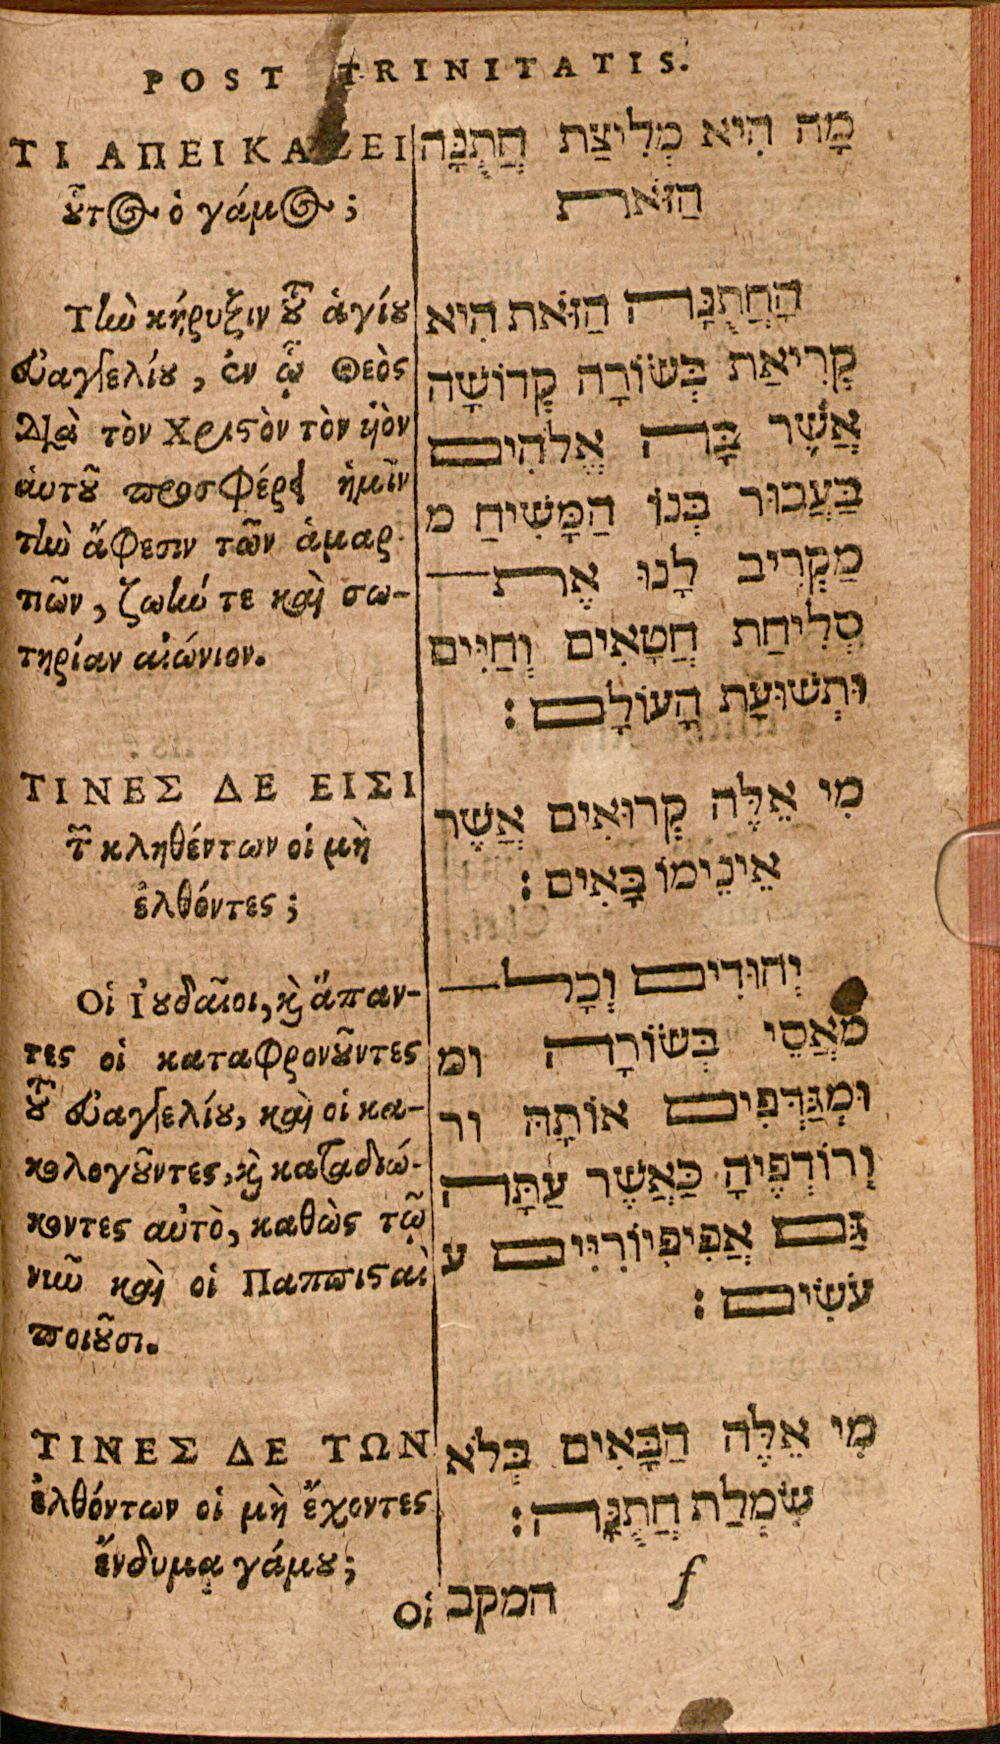 POST TRINITATIS.
ΤΙ ΑΠΕΙΚΑΖΕΙ
οὗτος ὁ γάμος;
Τὴν κήρυξιν τοῦ ἁγίου
εὐαγγελίου, ἐν ᾧ Θεὸς
διὰ τὸν Χριστὸν τὸν ὑὸν
ἁυτοῦ προσφέρει ἡμῖν
τὴν ἄφεσιν τῶν ἁμαρ-
τιῶν, ζωήν τε καὶ σω-
τηρίαν αἰώνιον.
ΤΙΝΕΣ ΔΕ ΕΙΣΙ
τῶν κληθέντων οἱ μὴ
ἐλθόντες;
Οἱ Ἰουδαῖοι, καὶ ἅπαν-
τες οἱ καταφρονοῦντες
τοῦ εὐαγγελίου, καὶ οἱ κα-
κολογοῦντες, καὶ καταδιώ-
κοντες αὐτὸ, καθὼς τῷ
νῦν καὶ οἱ Παπισταὶ
ποιοῦσι.
ΤΙΝΕΣ ΔΕ ΤΩΝ
ἐλθόντων οἱ μὴ ἔχοντες
ἔνδυμα γάμου;
Οἱ
מָה הִיא מְלִיצַת חֲתֻנָּה
הַזֹּאת
הָחֲתֻנָּה הַזֹּאת הִיא
קְרִיאַת בְּשׂוֹרָה קְדוֹשָׁה
אֲשֶׁר בָּהּ אֱלֹהִים
בַּעֲבוּר בְּנוֹ הַמָּשִׁיחַ מ
מַקְרִיב לָנוּ אֶת
סְלִיחַת חֲטָאִים וְחַיִּים
וּתְשׁוּעַת הָעוֹלָם :
מִי אֵלֶּה קְרוּאִים אֲשֶׁר
אֵינֵימוֹ בָּאִים :
יְהוּדִים וְכָל
מֹאֲסֵי בְּשׂוֹרָה ומ
וּמְגַדְּפִים אוֹתָהּ ור
וְרוֹדְפֶיהָ כַּאֲשֶׁר עַתָּה
גַּם אֲפִיפִיוֹרִיִּים ע
עֹשִׂים :
מִי אֵלֶּה הַבָּאִים בְּלֹא
שִׂמְלַת חֲתֻנָּה :
המקב f